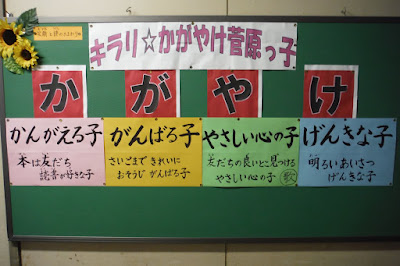 キラリ☆かがやけ菅原っ子
か
が
や
け
かんがえる子
本は友だち
読書が好きな子
がんばる子
さいごまできれいに
おそうじ がんばる子
やさしい心の子
友だちの良いとこ見つける
やさしい心の子
げんきな子
明るいあいさつ
げんきな子